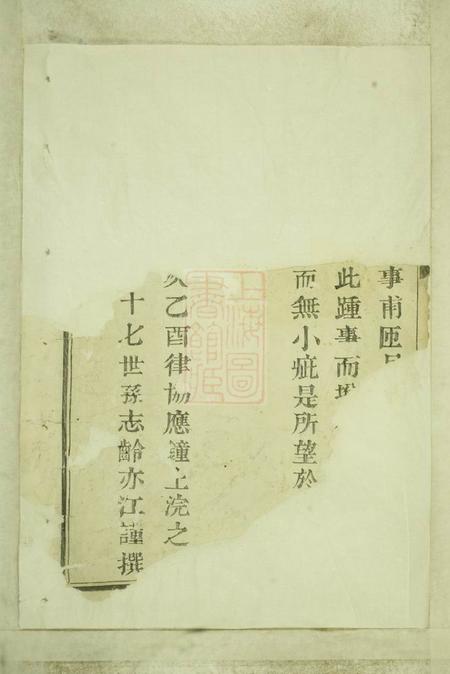 事甫匝月
此踵事而增
而無小疵是所望於
次乙酉律協應鐘上浣之
十七世孫志齡亦江謹撰
上海圖書館藏